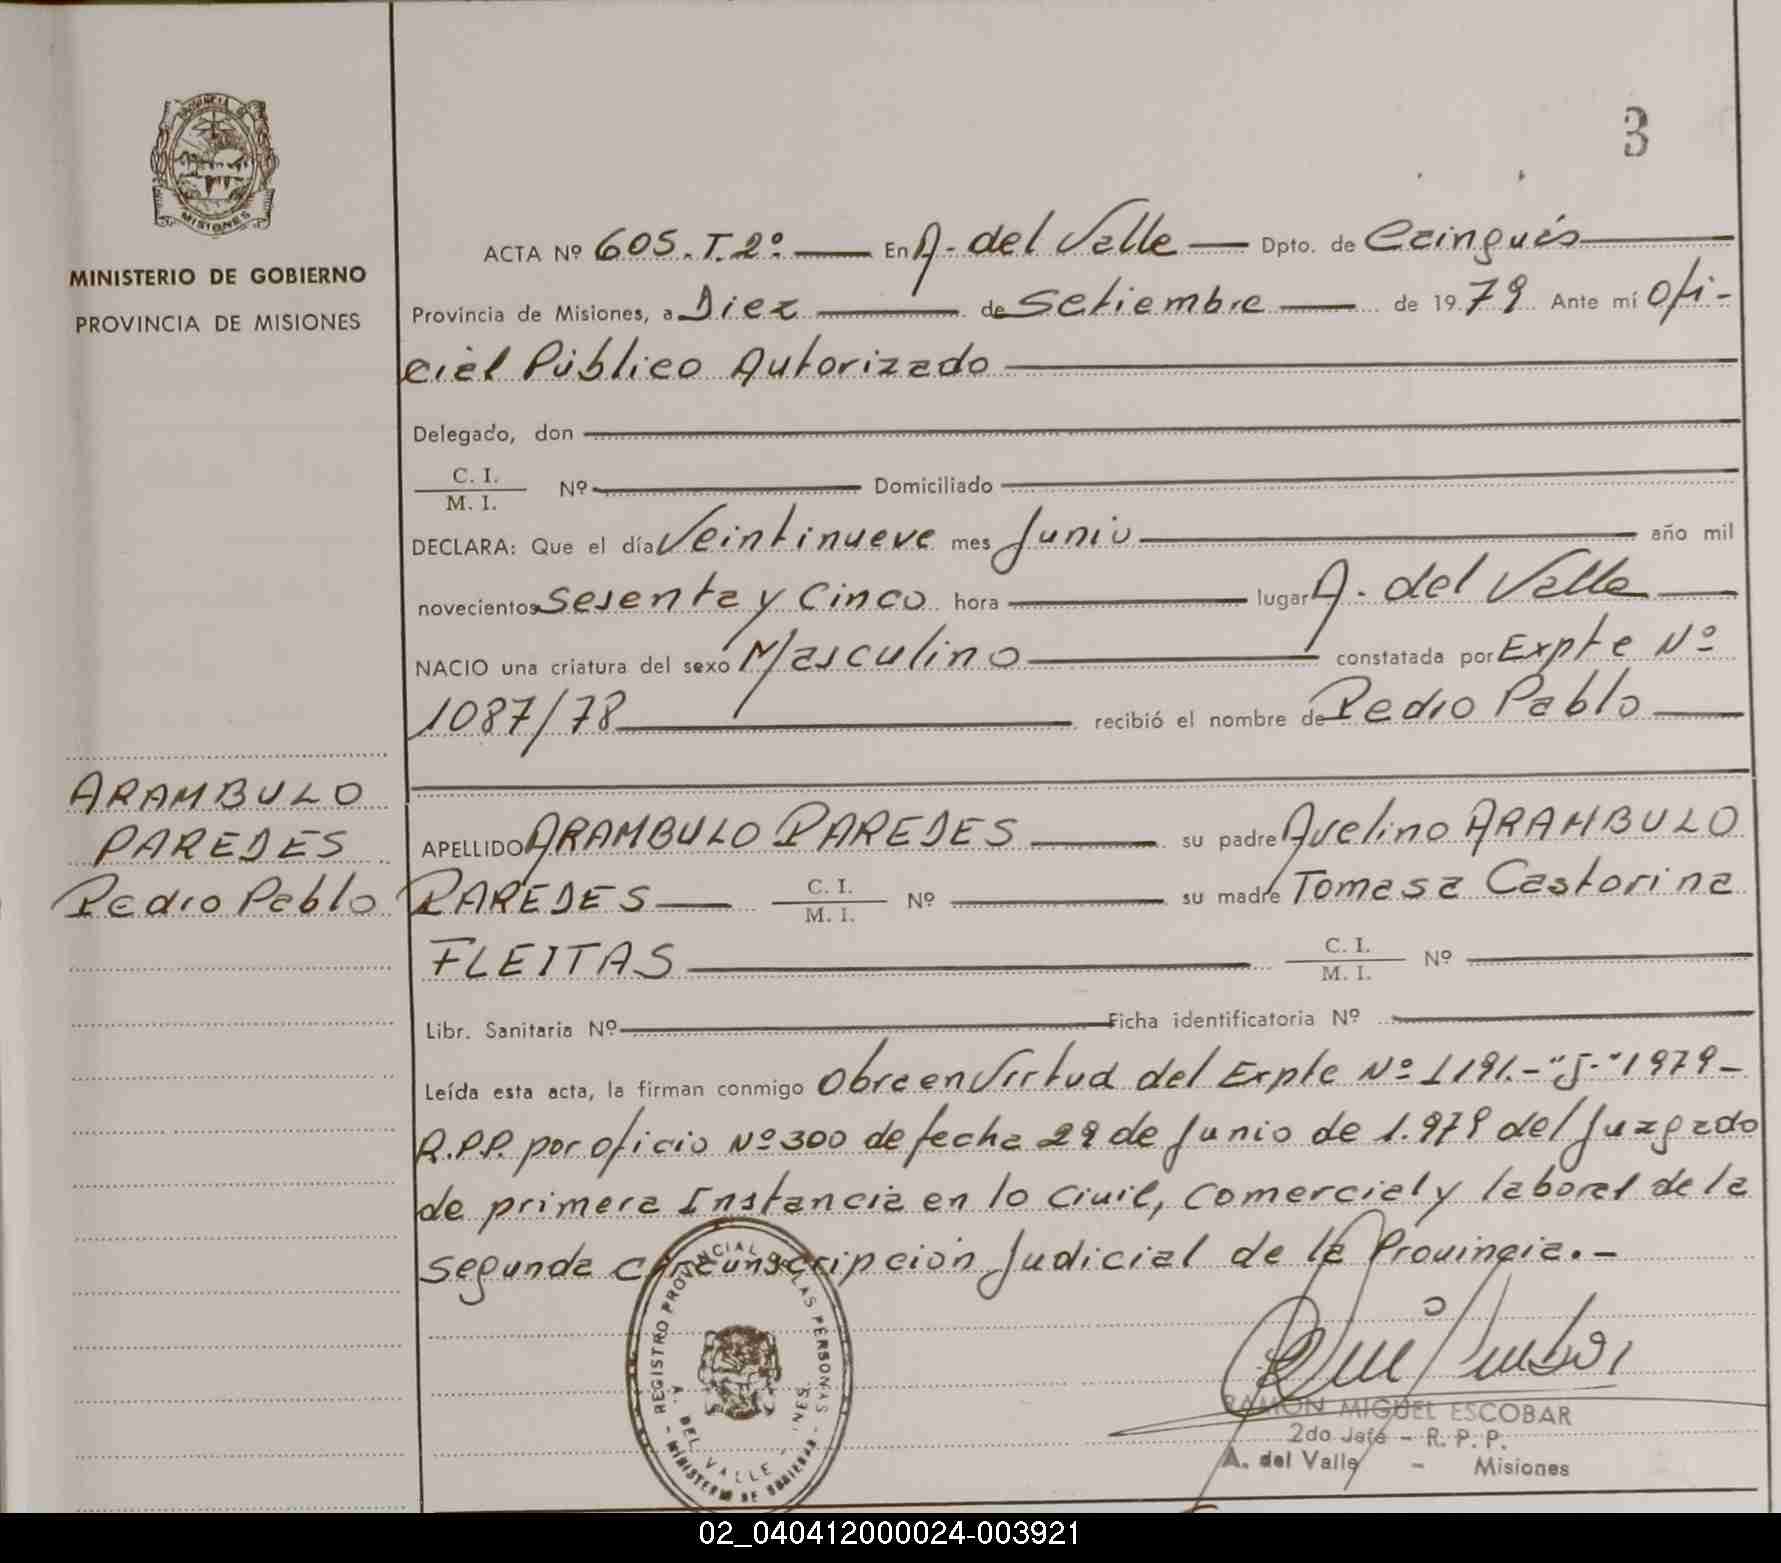 PROVINCIA DE
MISIONES
MINISTERIO DE GOBIERNO
PROVINCIA DE MISIONES
3
ACTA Nº 605.T.2º. En A. del Valle Dpto. de Cainguás
Provincia de Misiones, a Diez de Setiembre de 1979 Ante mí Ofi-
cial Público Autorizado
Delegado, don
C. I.
M. I. Nº Domiciliado
DECLARA: Que el día Veintinueve mes Junio año mil
novecientos Sesenta y Cinco hora lugar A. del Valle
NACIO una criatura del sexo Masculino constatada por Expte Nº
1087/78 recibió el nombre de Pedro Pablo
ARAMBULO
PAREDES
Pedro Pablo
APELLIDO ARAMBULO PAREDES su padre Avelino ARAMBULO
PAREDES C. I. M. I. Nº su madre Tomasa Castorina
FLEITAS C. I. M. I. Nº
Libr. Sanitaria Nº Ficha identificatoria Nº
Leída esta acta, la firman conmigo Obra en Virtud del Expte Nº 1191.-"J-"1979-
R.P.P. por oficio Nº 300 de fecha 29 de Junio de 1.979 del Juzgado
de primera Instancia en lo Civil, Comercial y laboral de la
segunda circunscripción Judicial de la Provincia.-
REGISTRO PROVINCIAL DE LAS PERSONAS
A. DEL VALLE - MNES.
- MINISTERIO DE GOBIERNO -
RAMON MIGUEL ESCOBAR
2do Jefe - R. P. P.
A. del Valle - Misiones
02_040412000024-003921